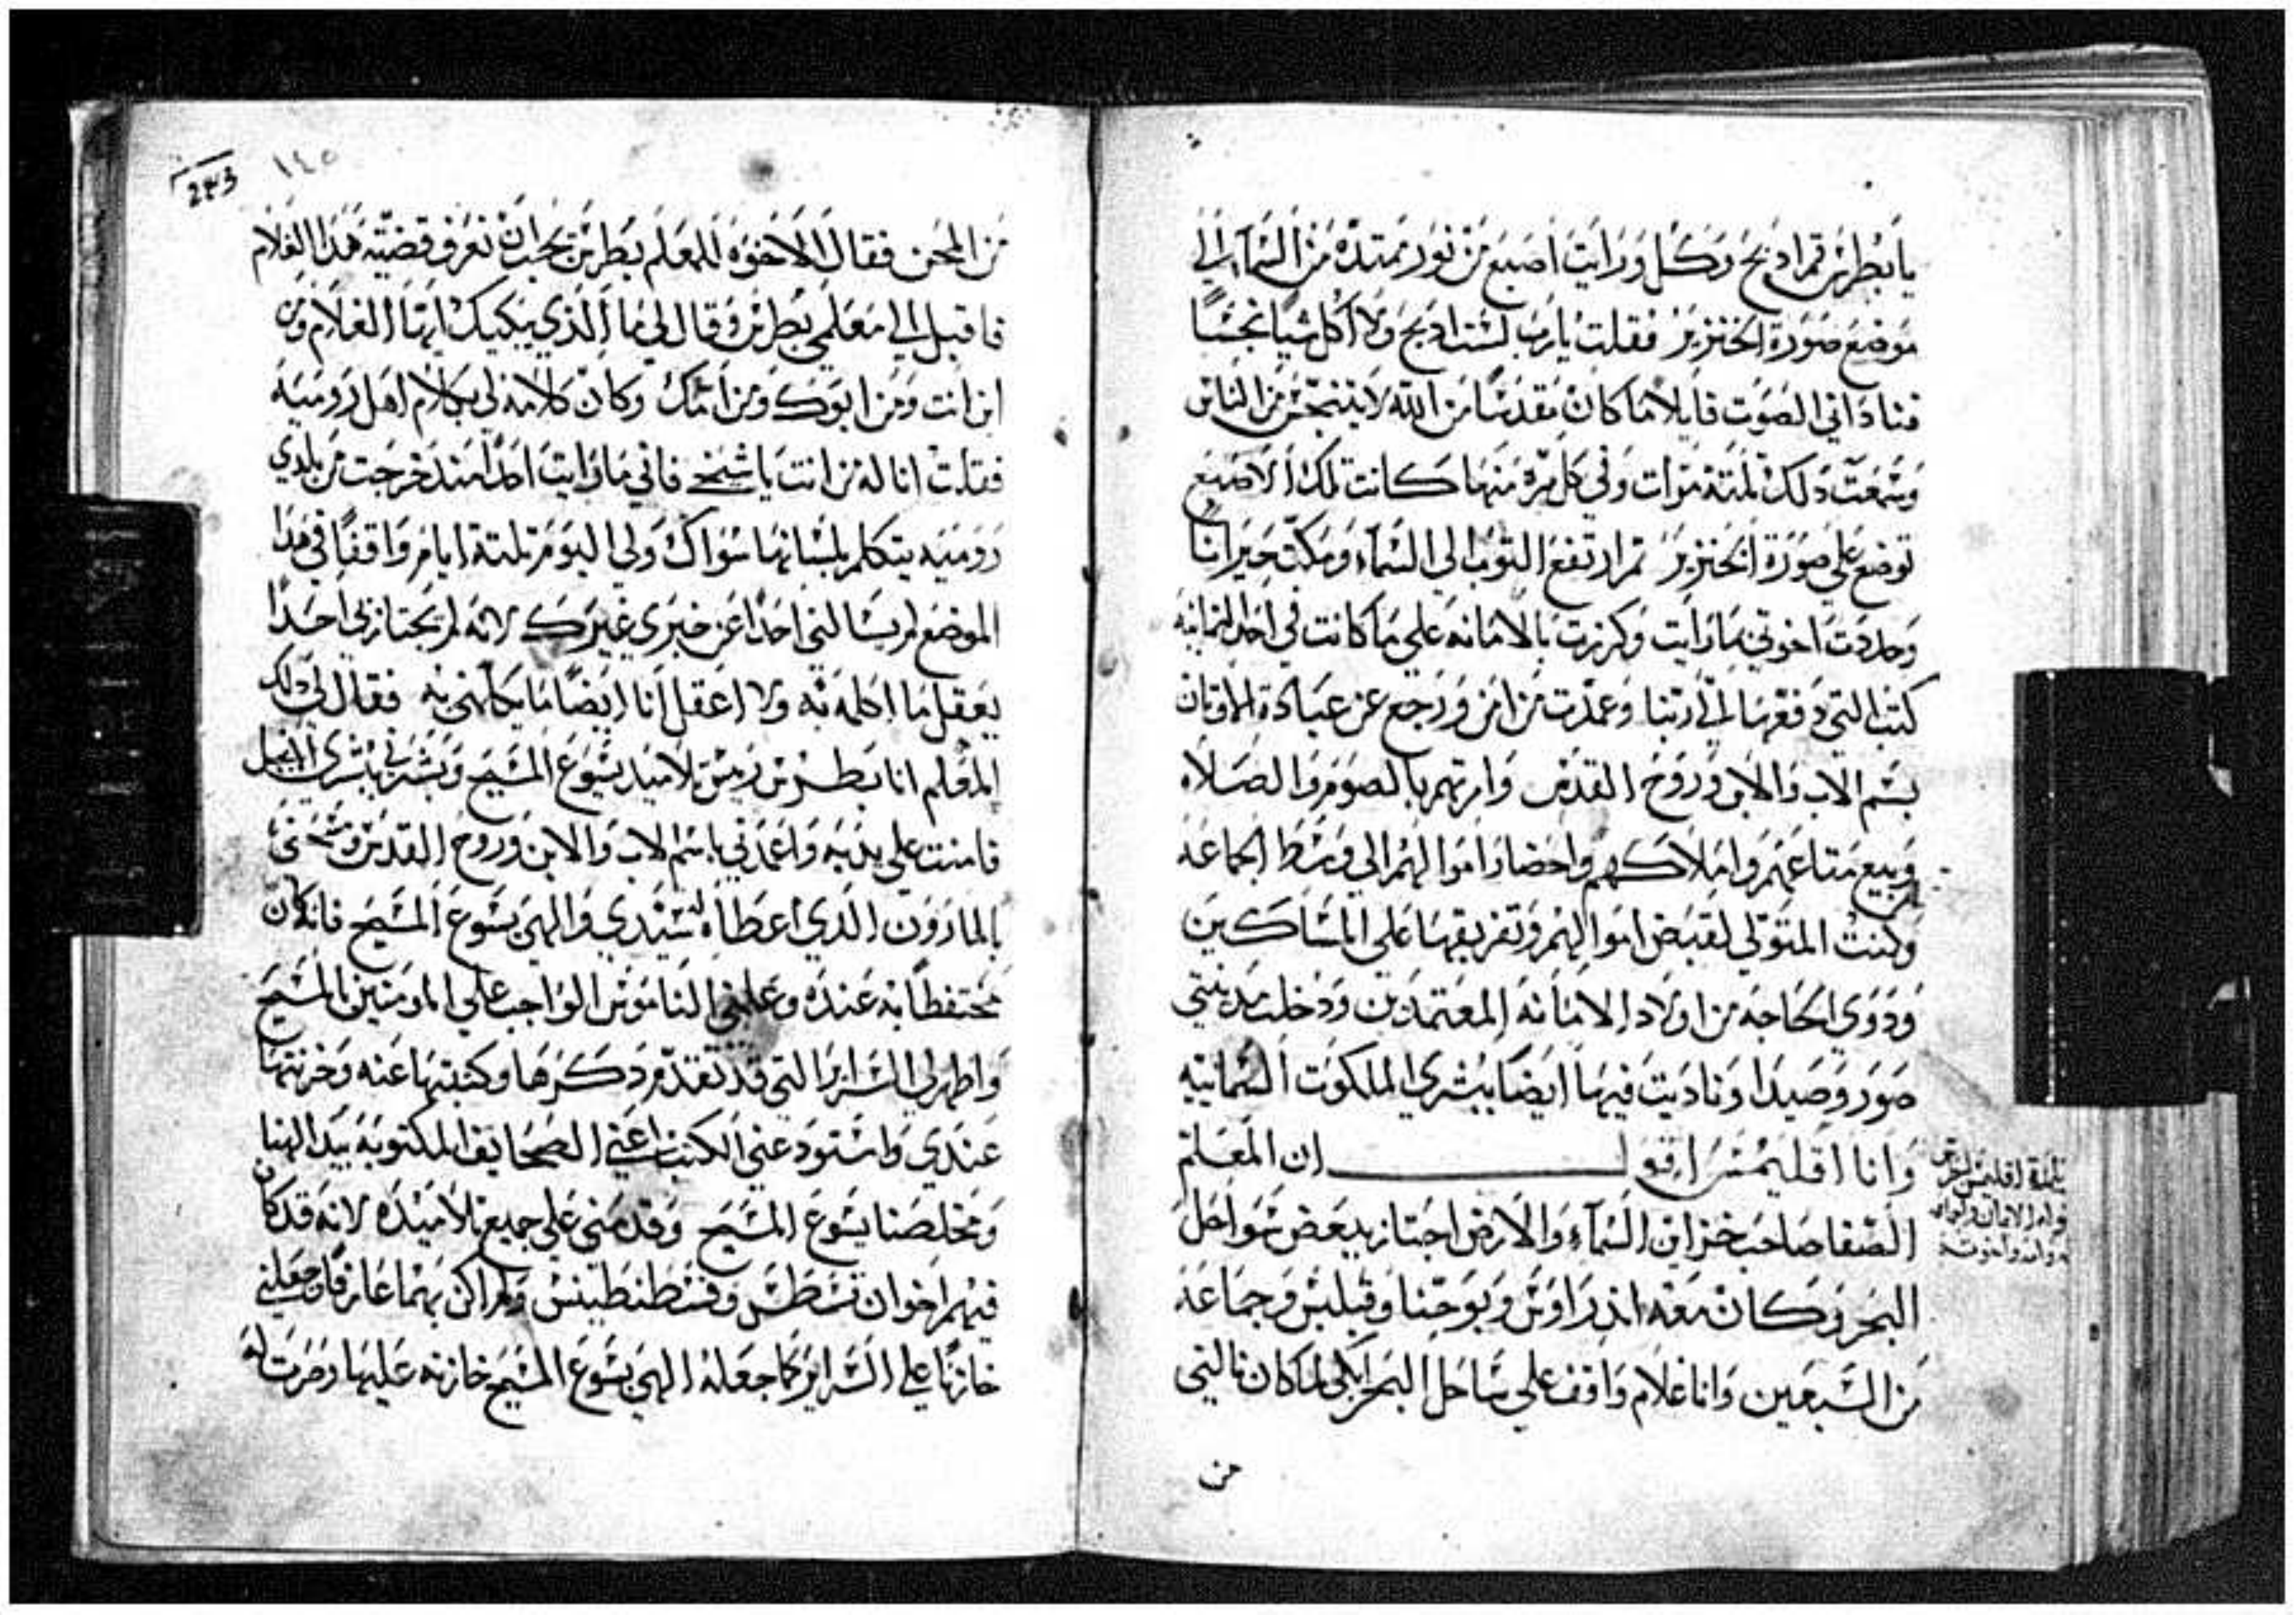 يا بطرس قم اذبح وكل ورايت اصبع من نور ممتده من السماء الي
موضع صورة الخنزير فقلت يا رب لست اذبح ولا اكل شيا نجسًا
فناداني الصوت قايلا ما كان مقدسًا من الله لا يتنجس من الناس
وسمعت دلك تلتة مرات وفي كل مره منها كانت تلك الاصبع
توضع علي صورة الخنزير تم ارتفع التوب الي السماء ومكتت حيرانًا
وحددت اخوتي بما رايت وكرزت بالامانه علي ما كانت في احد التمانيه
كتب التي دفعها لي ربنا وعمدت من امن ورجع عن عبادة الاوتان
بسم الاب والابن وروح القدس وامرتهم بالصوم والصلاه
وبيع متاعهم واملاكهم واحضار اموالهم الي وسط الجماعه
وكنت المتولي لقبض اموالهم وتفريقها علي المساكين
ودوي الحاجه من اولاد الامانه المعتمدين ودخلت مدينتي
صور وصيدا وناديت فيها ايضا ببشري الملكوت السماييه
وانا اقليمس اقول ان المعلم
الصفا صاحب خزاين السماء والارض اجتاز ببعض سواحل
البحر وكان معه اندراوس ويوحنا وفيلبس وجماعه
من السبعين وانا غلام واقف علي ساحل البحر ابكي لما كان نالني
من
243 ١٤٥
من المحن فقال الاخوه للمعلم بطرس يجب ان تعرف قضيته هدا الغلام
فاقبل الي معلمي بطرس وقال لي ما الذي يبكيك ايها الغلام ومن
اين انت ومن ابوك ومن امك وكان كلامه لي بكلام اهل روميه
فقلت انا له من انت يا شيخ فاني ما رايت احدًا مند خرجت من بلدي
روميه يتكلم بلسانها سواك ولي اليوم تلتة ايام واقفًا في هدا
الموضع لم يسالني احدًا عن خبري غيرك لانه لم يجتاز بي احدًا
يعقل ما اكلمه به ولا اعقل انا ايضًا ما يكلمني به فقال لي دلك
المعلم انا بطرس ريس تلاميد يسوع المسيح وبشرني ببشري الانجيل
فامنت علي يديه واعمدني باسم الاب والابن وروح القدس ومسحني
بالمارون الذي اعطاه له سيدي والهي يسوع المسيح فانه كان
محتفظًا به عنده وعلمني الناموس الواجب علي المومنين بالمسيح
واظهر لي السراير التي قد تقدم دكرها وكتبتها عنه وخزنتها
عندي واستودعني الكتب اعني الصحايف المكتوبة بيد الهنا
ومخلصنا يسوع المسيح وقدمني علي جميع تلاميده لانه قد كان
فيهم اخوان قسطس وقسطنطينس ولم اكن بهما عارفًا وجعلني
خازنًا علي السراير كما جعله الهي يسوع المسيح خازنه عليها وصرت له